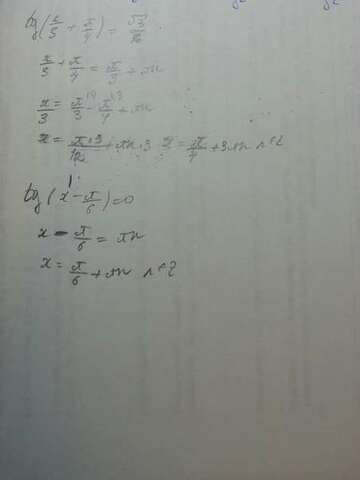 tg(x/3 + π/4) = √3/3
x/3 + π/4 = π/3 + πn
x/3 = π/3 - π/4 + πn
x = π·3/12 + πn·3 x = π/4 + 3πn n∈Z
tg(x - π/6) = 0
x - π/6 = πn
x = π/6 + πn n∈Z